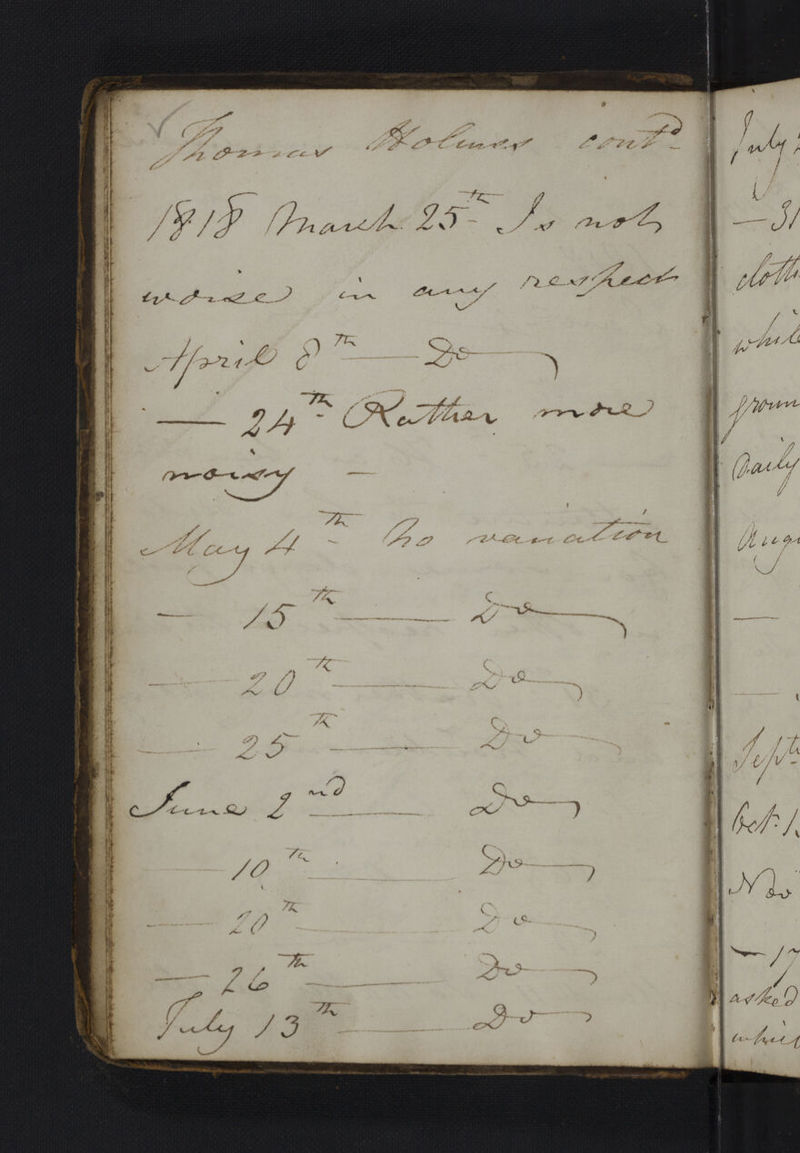 Thomas Holmes contd
1818 March 25th Is not
worse in any respect
April 8th — Do
— 24th Rather more
noisy —
May 4th - No variation
— 15th — Do
— 20th — Do
— 25th — Do
June 2nd — Do
— 10th — Do
— 20th — Do
— 26th — Do
July 13th — Do
July
— 31
cloth
while
groun
Daily
Augu
—
—
Septr
Oct. 1
Nov
— 17
asked
whic